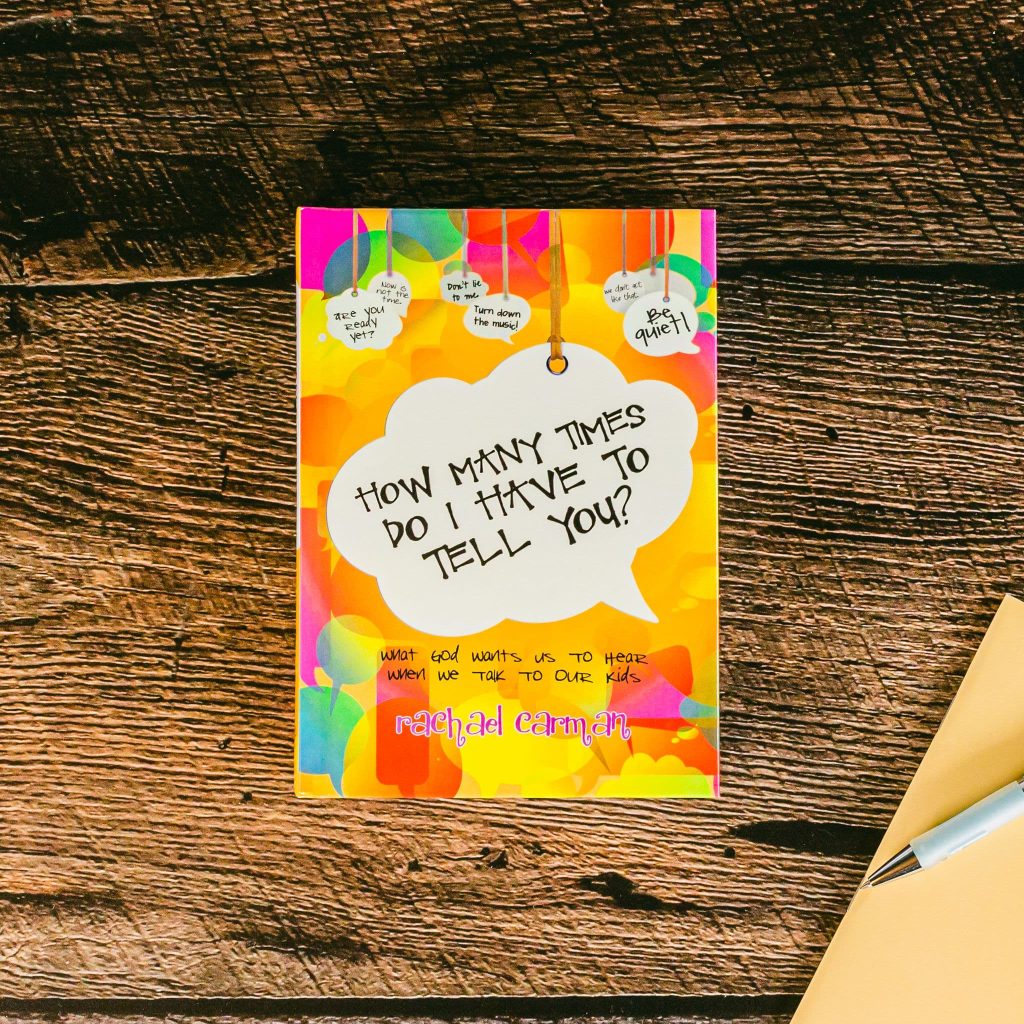 Now is
not the
time.
are you
ready
yet?
Don't lie
to me.
Turn down
the music!
we don't act
like that.
Be
quiet!
HOW MANY TIMES
DO I HAVE TO
TELL YOU?
what God wants us to hear
when we talk to our kids
rachael carman